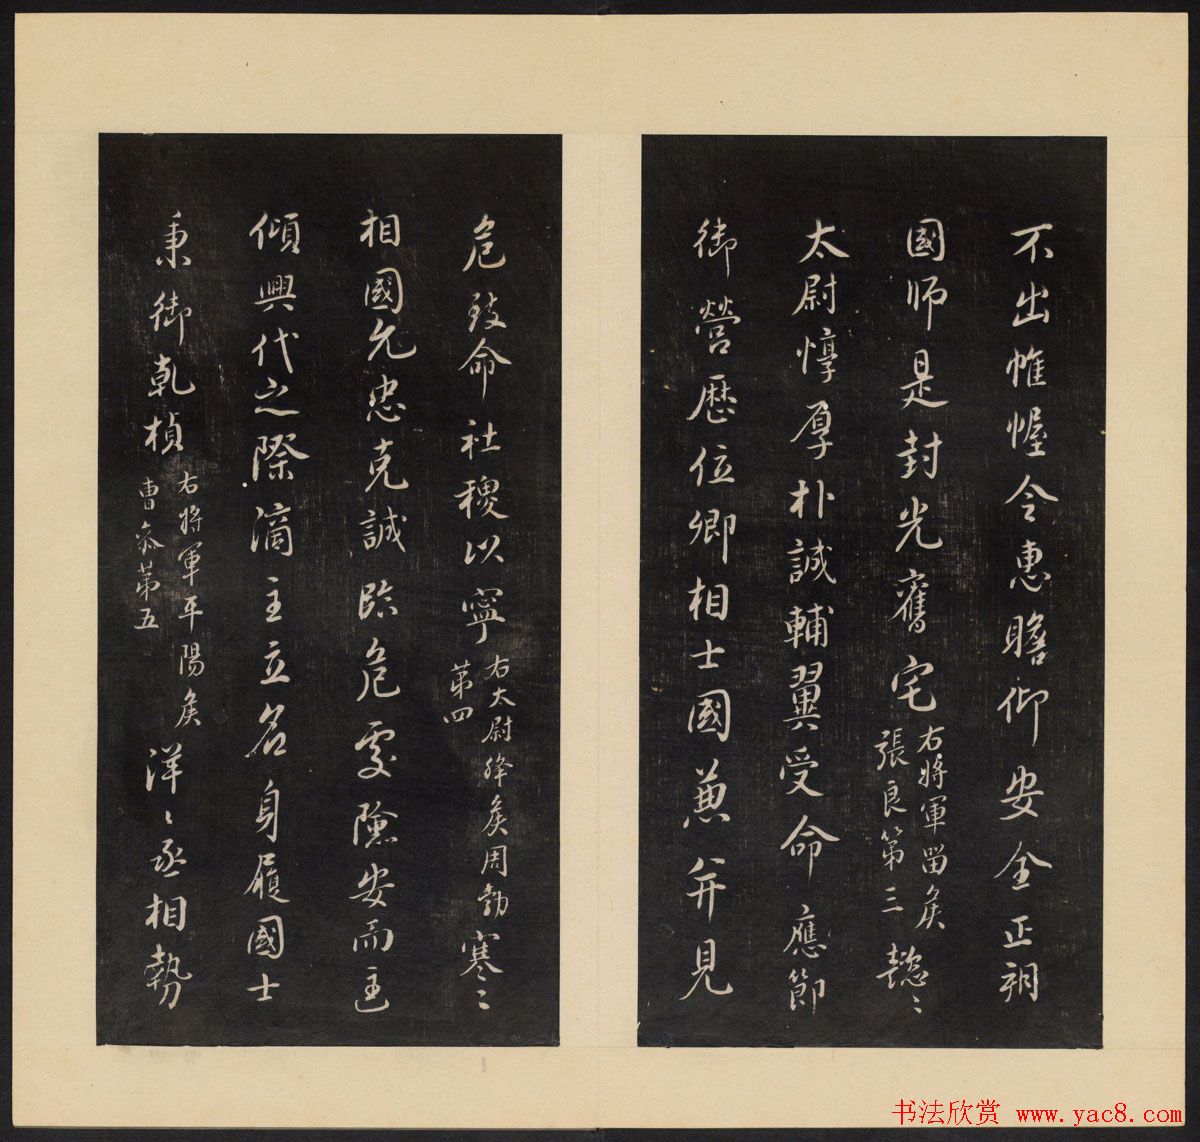 不出帷幄令惠瞻仰安全正朔
國師是封光舊宅
右將軍留侯
張良第三
懿〻
太尉惇厚朴誠輔翼受命應節
御營歷位卿相士國兼并見
危致命社稷以寧
右太尉絳侯周勃
第四
寒〻
相國允忠克誠臨危處險安而匡
傾興代之際滴主立名身履國士
秉御乾楨
右將軍平陽侯
曹參第五
洋〻丞相勢
书法欣赏 www.yac8.com